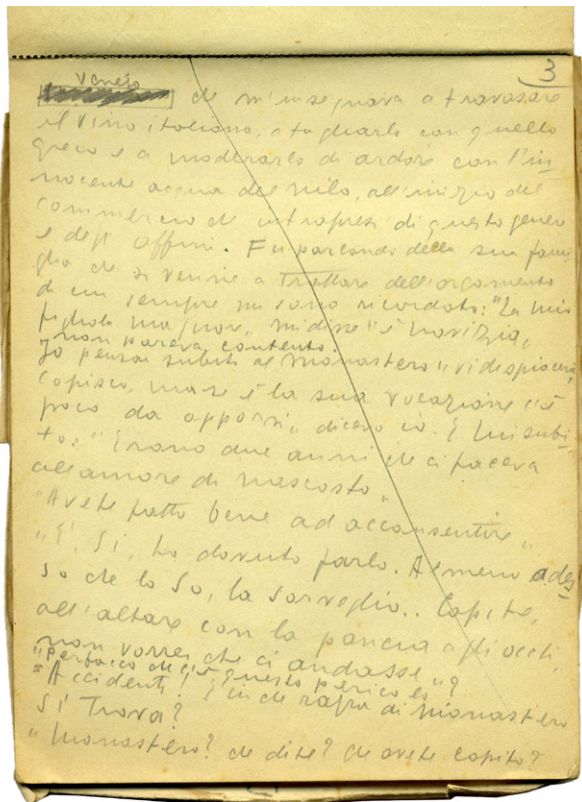 3
Veneto
che m'insegnava a travasare
il vino italiano, a tagliarlo con quello
greco e a moderarlo di ardore con l'in
nocente acqua del nilo, all'inizio del
commercio che intrapresi di questo genere
e degli affini. Fu parlando della sua fami
glia che si venne a trattare dell'argomento
di cui sempre mi sono ricordato: "La mia
figliola maggiore" mi disse "è novizia"
e non pareva contento.
Io pensai subito al monastero "vi dispiacerà,
capisco, ma se è la sua vocazione c'è
poco da opporsi" dicevo io. E lui subi-
to: "Erano due anni che ci faceva
all'amore di nascosto"
"Avete fatto bene ad acconsentire"
"E, si, ho dovuto farlo. Almeno ades
so che lo so, la sorveglio.. Capite,
all'altare con la pancia agli occhi,
non vorrei che ci andasse"?
"Perbacco che c'è questo pericolo
"Accidenti! E in che razza di monastero
si trova?
"Monastero? che dite? che avete capito?